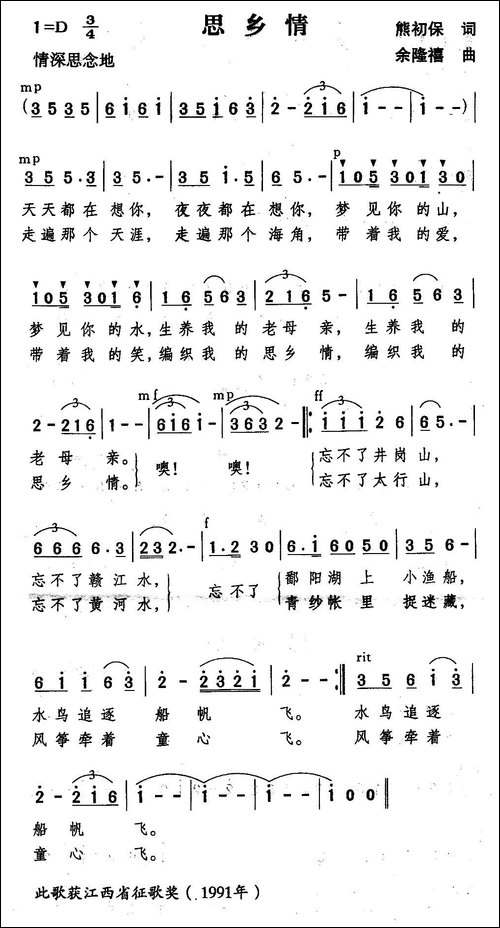 1=D 3/4 思乡情 熊初保 词
情深思念地 余隆禧 曲
mp
(3535 | 6161 | 35163 | 2- 216 | 1-- | 1--) |
mp p
355.3 | 35.- | 35 1.5 | 65.- | 105 301 30 |
天天都在想你，夜夜都在想你，梦见你的山，
走遍那个天涯，走遍那个海角，带着我的爱，
105 301 6 | 16 563 | 2 216 | 65- | 16 563 |
梦见你的水，生养我的老母亲，生养我的
带着我的笑，编织我的思乡情，编织我的
mf mp ff
2- 216 | 1-- | 6161- | 3632- |: 111 26 | 65.- |
老母亲。噢！噢！忘不了井岗山，
思乡情。忘不了太行山，
f
666 6.3 | 232 2.- | 1.2 30 | 6.1 6050 | 356- |
忘不了赣江水，忘不了鄱阳湖上小渔船，
忘不了黄河水，青纱帐里捉迷藏，
rit
61163 | 2- 2321 | 2-- :| 35613 |
水鸟追逐船帆飞。水鸟追逐
风筝牵着童心飞。风筝牵着
2- 216 | 1-- | 1-- | 1-- | 100 ||
船帆飞。
童心飞。
此歌获江西省征歌奖（1991年）